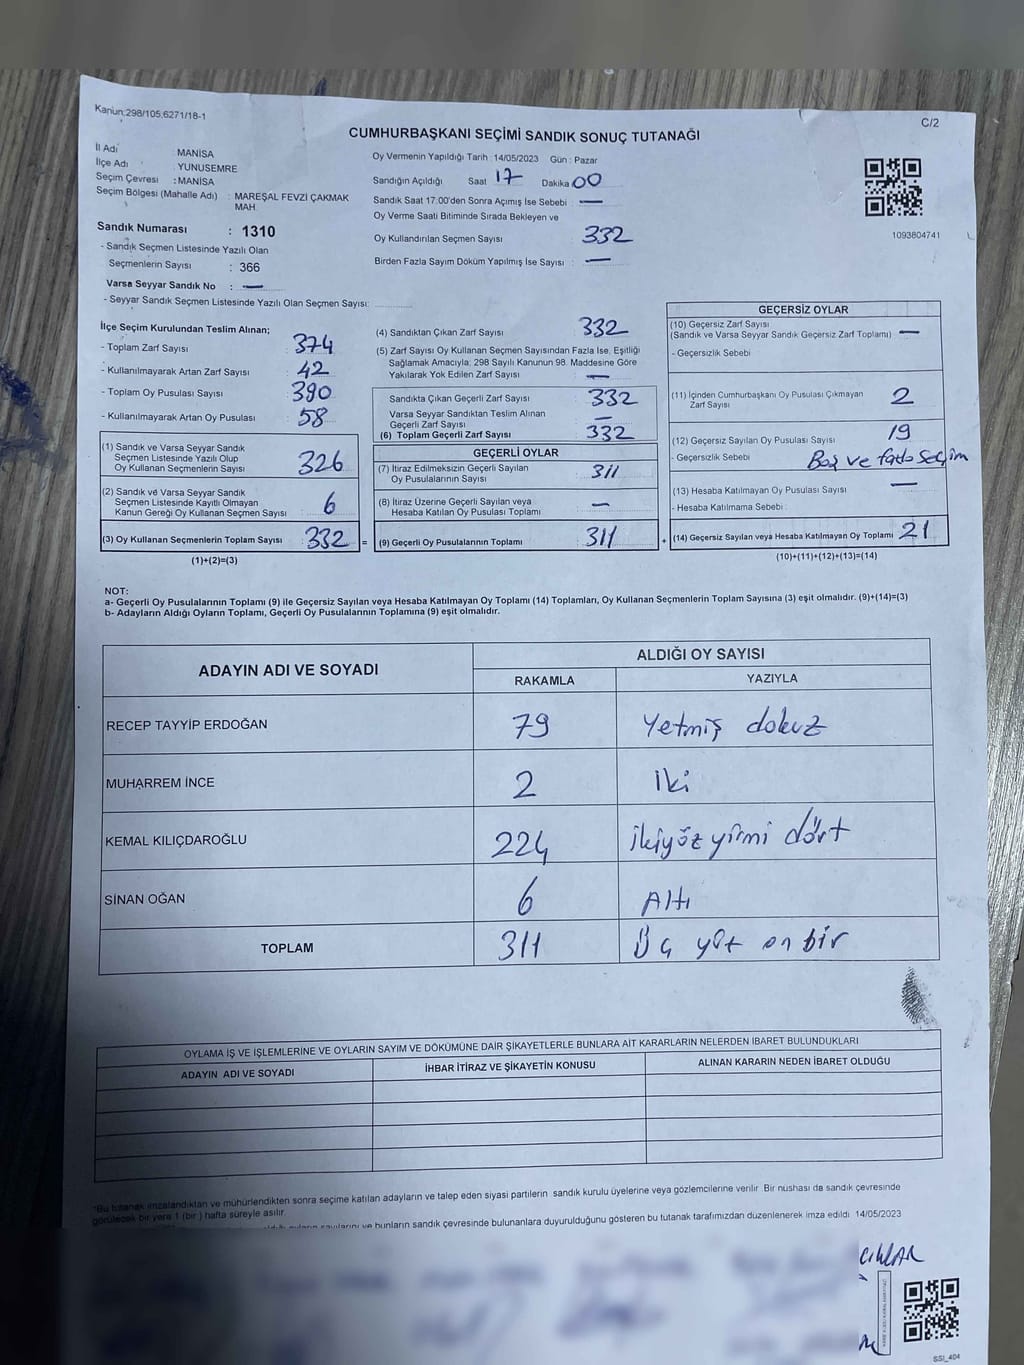 Kanun:298/105.6271/18-1
C/2
CUMHURBAŞKANI SEÇİMİ SANDIK SONUÇ TUTANAĞI
İl Adı : MANİSA
İlçe Adı : YUNUSEMRE
Seçim Çevresi : MANİSA
Seçim Bölgesi (Mahalle Adı) : MAREŞAL FEVZİ ÇAKMAK
MAH.
Sandık Numarası : 1310
- Sandık Seçmen Listesinde Yazılı Olan
Seçmenlerin Sayısı : 366
Varsa Seyyar Sandık No : —
- Seyyar Sandık Seçmen Listesinde Yazılı Olan Seçmen Sayısı:
Oy Vermenin Yapıldığı Tarih : 14/05/2023 Gün : Pazar
Sandığın Açıldığı Saat 17 Dakika 00
Sandık Saat 17.00'den Sonra Açımış İse Sebebi : —
Oy Verme Saati Bitiminde Sırada Bekleyen ve
Oy Kullandırılan Seçmen Sayısı : 332
Birden Fazla Sayım Döküm Yapılmış İse Sayısı : —
1093804741
İlçe Seçim Kurulundan Teslim Alınan;
- Toplam Zarf Sayısı : 374
- Kullanılmayarak Artan Zarf Sayısı : 42
- Toplam Oy Pusulası Sayısı : 390
- Kullanılmayarak Artan Oy Pusulası : 58
(1) Sandık ve Varsa Seyyar Sandık
Seçmen Listesinde Yazılı Olup
Oy Kullanan Seçmenlerin Sayısı : 326
(2) Sandık ve Varsa Seyyar Sandık
Seçmen Listesinde Kayıtlı Olmayan
Kanun Gereği Oy Kullanan Seçmen Sayısı : 6
(3) Oy Kullanan Seçmenlerin Toplam Sayısı : 332 =
(1)+(2)=(3)
(4) Sandıktan Çıkan Zarf Sayısı : 332
(5) Zarf Sayısı Oy Kullanan Seçmen Sayısından Fazla İse, Eşitliği
Sağlamak Amacıyla; 298 Sayılı Kanunun 98. Maddesine Göre
Yakılarak Yok Edilen Zarf Sayısı : —
Sandıkta Çıkan Geçerli Zarf Sayısı : 332
Varsa Seyyar Sandıktan Teslim Alınan
Geçerli Zarf Sayısı : —
(6) Toplam Geçerli Zarf Sayısı : 332
GEÇERLİ OYLAR
(7) İtiraz Edilmeksizin Geçerli Sayılan
Oy Pusulalarının Sayısı : 311
(8) İtiraz Üzerine Geçerli Sayılan veya
Hesaba Katılan Oy Pusulası Toplamı : —
(9) Geçerli Oy Pusulalarının Toplamı : 311 +
GEÇERSİZ OYLAR
(10) Geçersiz Zarf Sayısı
(Sandık ve Varsa Seyyar Sandık Geçersiz Zarf Toplamı) : —
- Geçersizlik Sebebi
(11) İçinden Cumhurbaşkanı Oy Pusulası Çıkmayan
Zarf Sayısı : 2
(12) Geçersiz Sayılan Oy Pusulası Sayısı : 19
- Geçersizlik Sebebi : Boş ve fazla Seçim
(13) Hesaba Katılmayan Oy Pusulası Sayısı : —
- Hesaba Katılmama Sebebi :
(14) Geçersiz Sayılan veya Hesaba Katılmayan Oy Toplamı : 21
(10)+(11)+(12)+(13)=(14)
NOT:
a- Geçerli Oy Pusulalarının Toplamı (9) ile Geçersiz Sayılan veya Hesaba Katılmayan Oy Toplamı (14) Toplamları, Oy Kullanan Seçmenlerin Toplam Sayısına (3) eşit olmalıdır. (9)+(14)=(3)
b- Adayların Aldığı Oyların Toplamı, Geçerli Oy Pusulalarının Toplamına (9) eşit olmalıdır.
ADAYIN ADI VE SOYADI ALDIĞI OY SAYISI
RAKAMLA YAZIYLA
RECEP TAYYİP ERDOĞAN 79 Yetmiş dokuz
MUHARREM İNCE 2 İki
KEMAL KILIÇDAROĞLU 224 ikiyöz yirmi dört
SİNAN OĞAN 6 Altı
TOPLAM 311 Üç yüz on bir
OYLAMA İŞ VE İŞLEMLERİNE VE OYLARIN SAYIM VE DÖKÜMÜNE DAİR ŞİKAYETLERLE BUNLARA AİT KARARLARIN NELERDEN İBARET BULUNDUKLARI
ADAYIN ADI VE SOYADI İHBAR İTİRAZ VE ŞİKAYETİN KONUSU ALINAN KARARIN NEDEN İBARET OLDUĞU
*Bu tutanak imzalandıktan ve mühürlendikten sonra seçime katılan adayların ve talep eden siyasi partilerin sandık kurulu üyelerine veya gözlemcilerine verilir. Bir nüshası da sandık çevresinde
görülecek bir yere 1 (bir) hafta süreyle asılır.
sayılarını ve bunların sandık çevresinde bulunanlara duyurulduğunu gösteren bu tutanak tarafımızdan düzenlenerek imza edildi. 14/05/2023
SSI_404